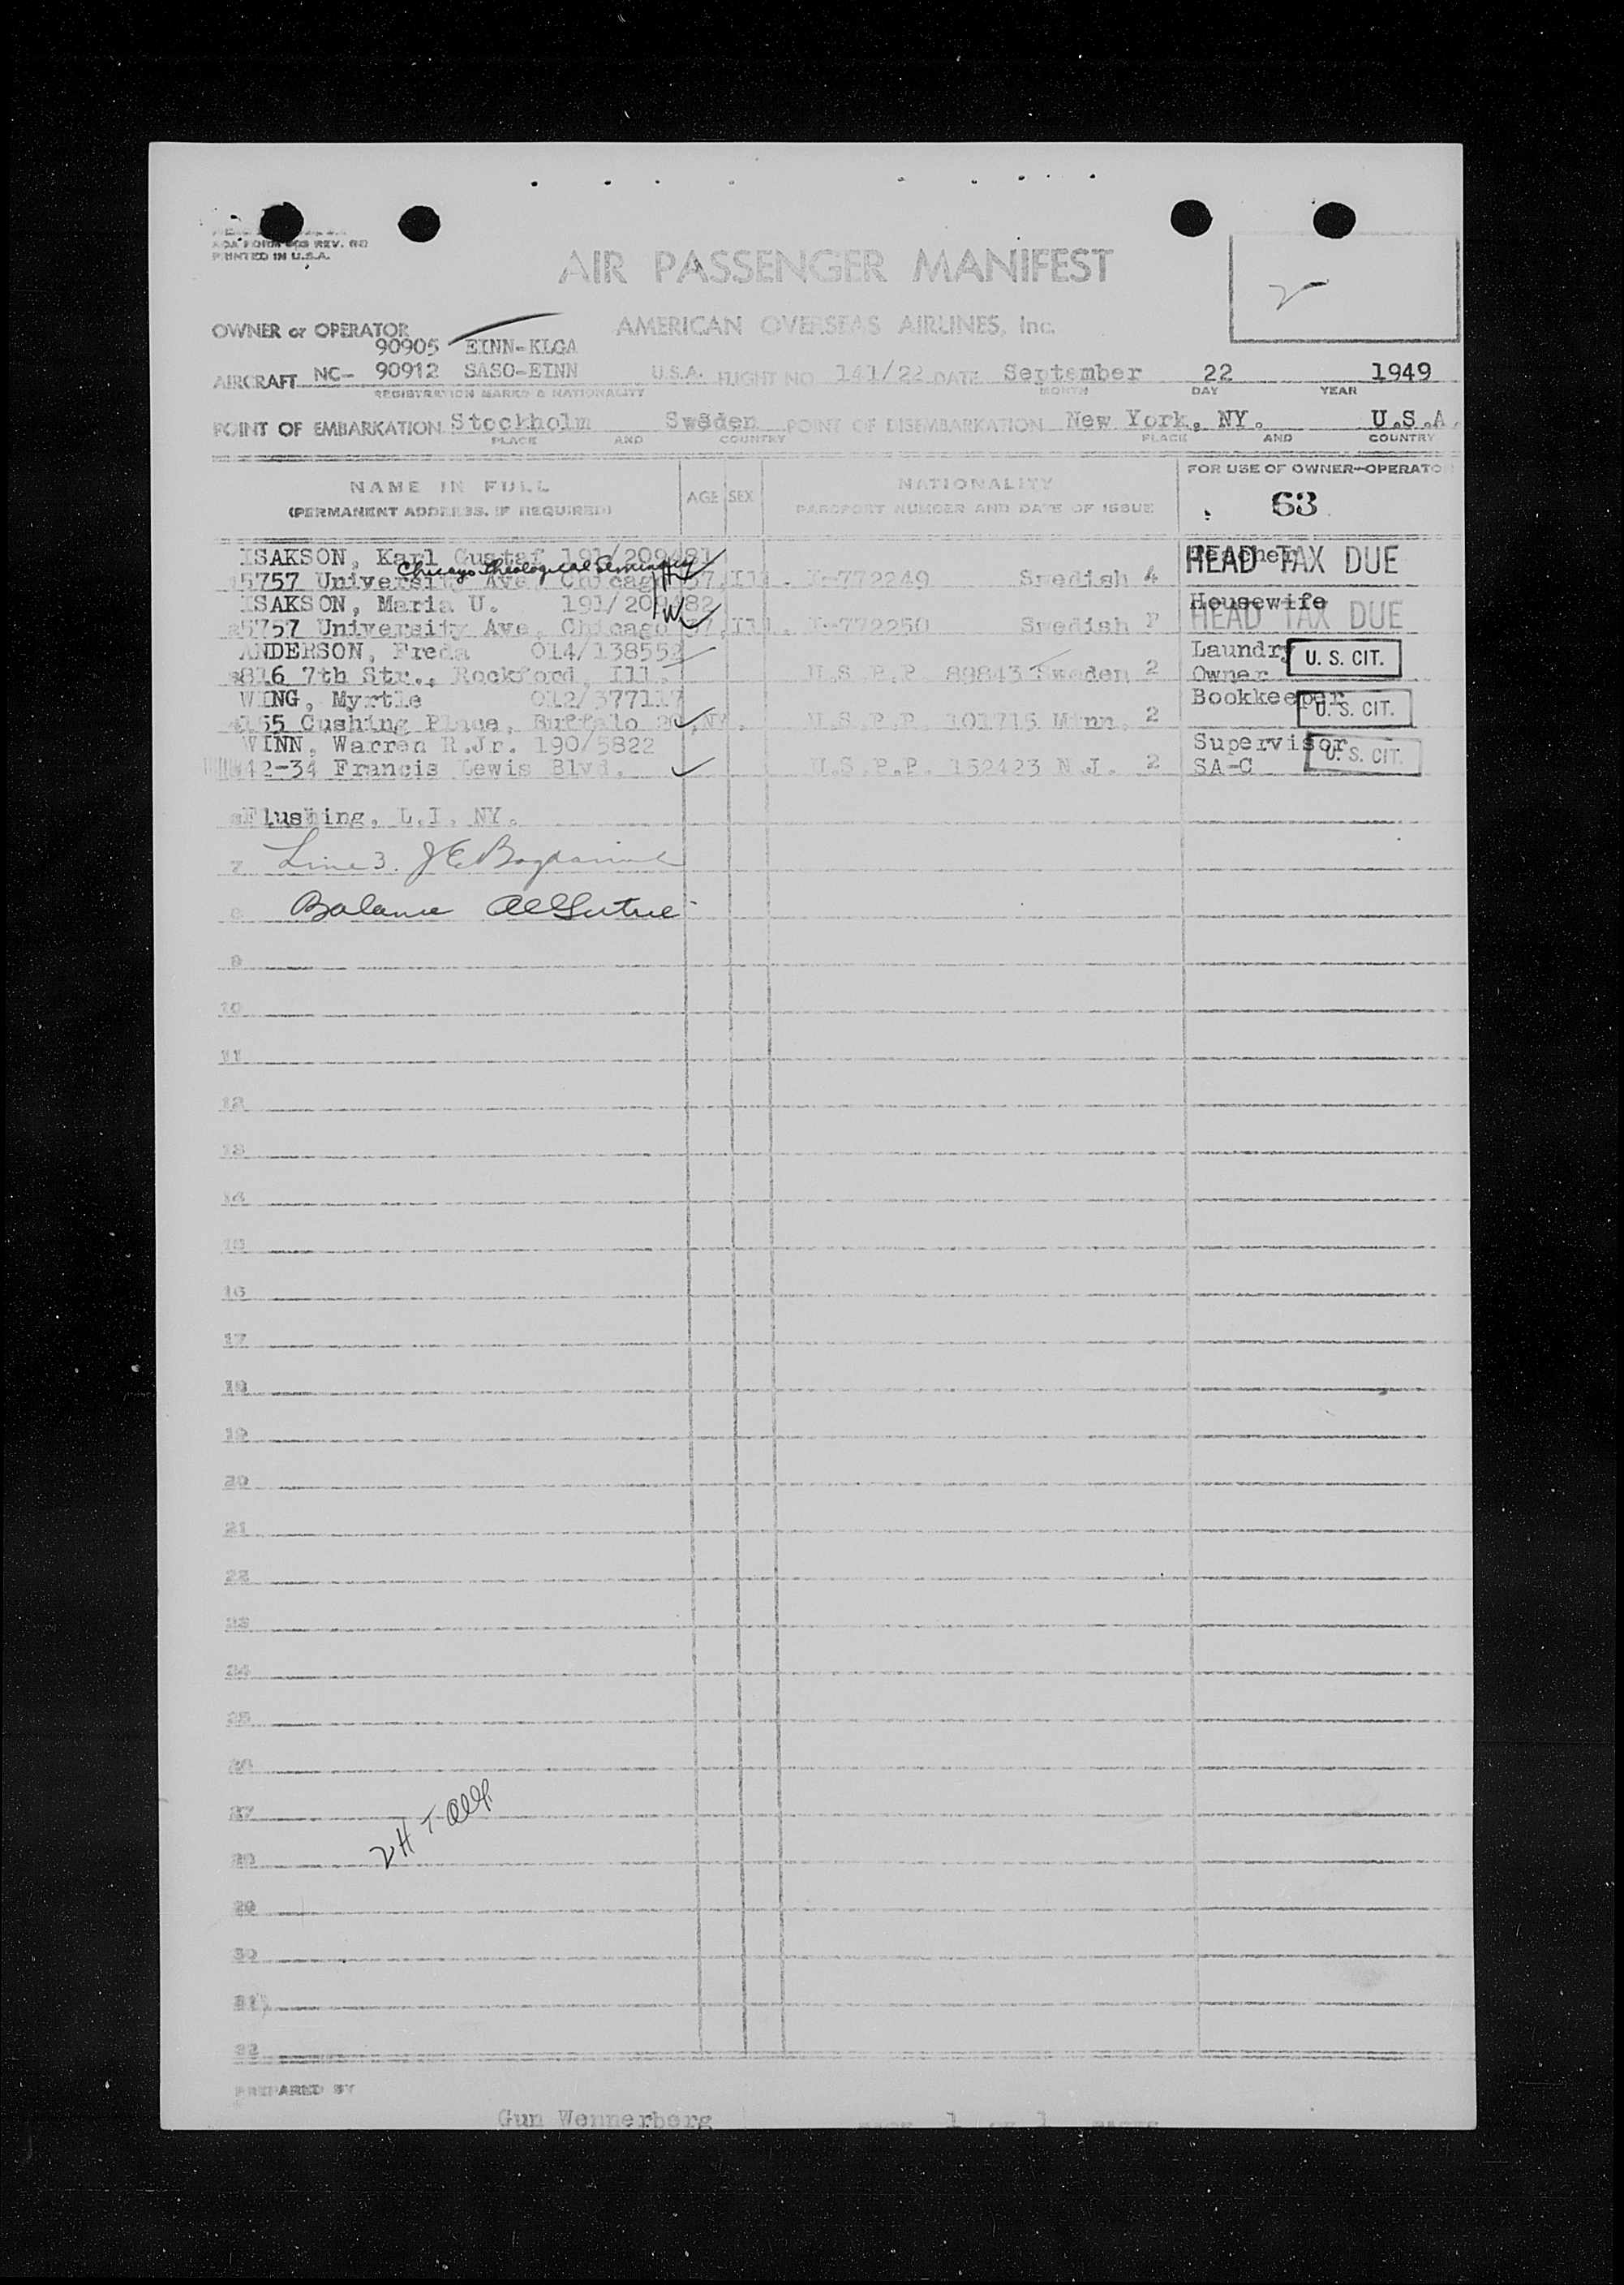 PRINTED IN U.S.A.
AIR PASSENGER MANIFEST
OWNER or OPERATOR
AMERICAN OVERSEAS AIRLINES, Inc.
90905 EINN-KLGA
AIRCRAFT NC- 90912 SASO-EINN U.S.A. FLIGHT NO. 141/22 DATE September 22 1949
REGISTRATION MARKS & NATIONALITY MONTH DAY YEAR
POINT OF EMBARKATION Stockholm Sweden POINT OF DISEMBARKATION New York, NY. U.S.A.
PLACE AND COUNTRY PLACE AND COUNTRY
NAME IN FULL
(PERMANENT ADDRESS, IF REQUIRED)
AGE SEX
NATIONALITY
PASSPORT NUMBER AND DATE OF ISSUE
FOR USE OF OWNER-OPERATO
63
ISAKSON, Karl Gustaf 191/209481
HEAD TAX DUE
Chicago Theological Seminary
5757 University Ave, Chicago 37, Ill. 772249 Swedish 4
ISAKSON, Maria U. 191/209482 Housewife
HEAD TAX DUE
5757 University Ave, Chicago 37, Ill. 772250 Swedish
ANDERSON, Freda 014/138552 Laundry
U. S. CIT.
816 7th Str., Rockford, Ill. U.S.P.P. 89843 Sweden 2 Owner
WING, Myrtle 012/377117 Bookkeeper
U. S. CIT.
155 Cushing Place, Buffalo 20, NY. U.S.P.P. 101715 Minn. 2
WINN, Warren R.Jr. 190/5822 Supervisor
U. S. CIT.
42-34 Francis Lewis Blvd. U.S.P.P. 152423 N.J. 2 SA-C
Flushing, L.I. NY.
7 Line 3. J E
8 Balance
9
10
11
12
13
14
15
16
17
18
19
20
21
22
23
24
25
26
27
28
2 H T
29
30
31
32
PREPARED BY
Gun Wennerberg PAGE 1 OF 1 PAGES